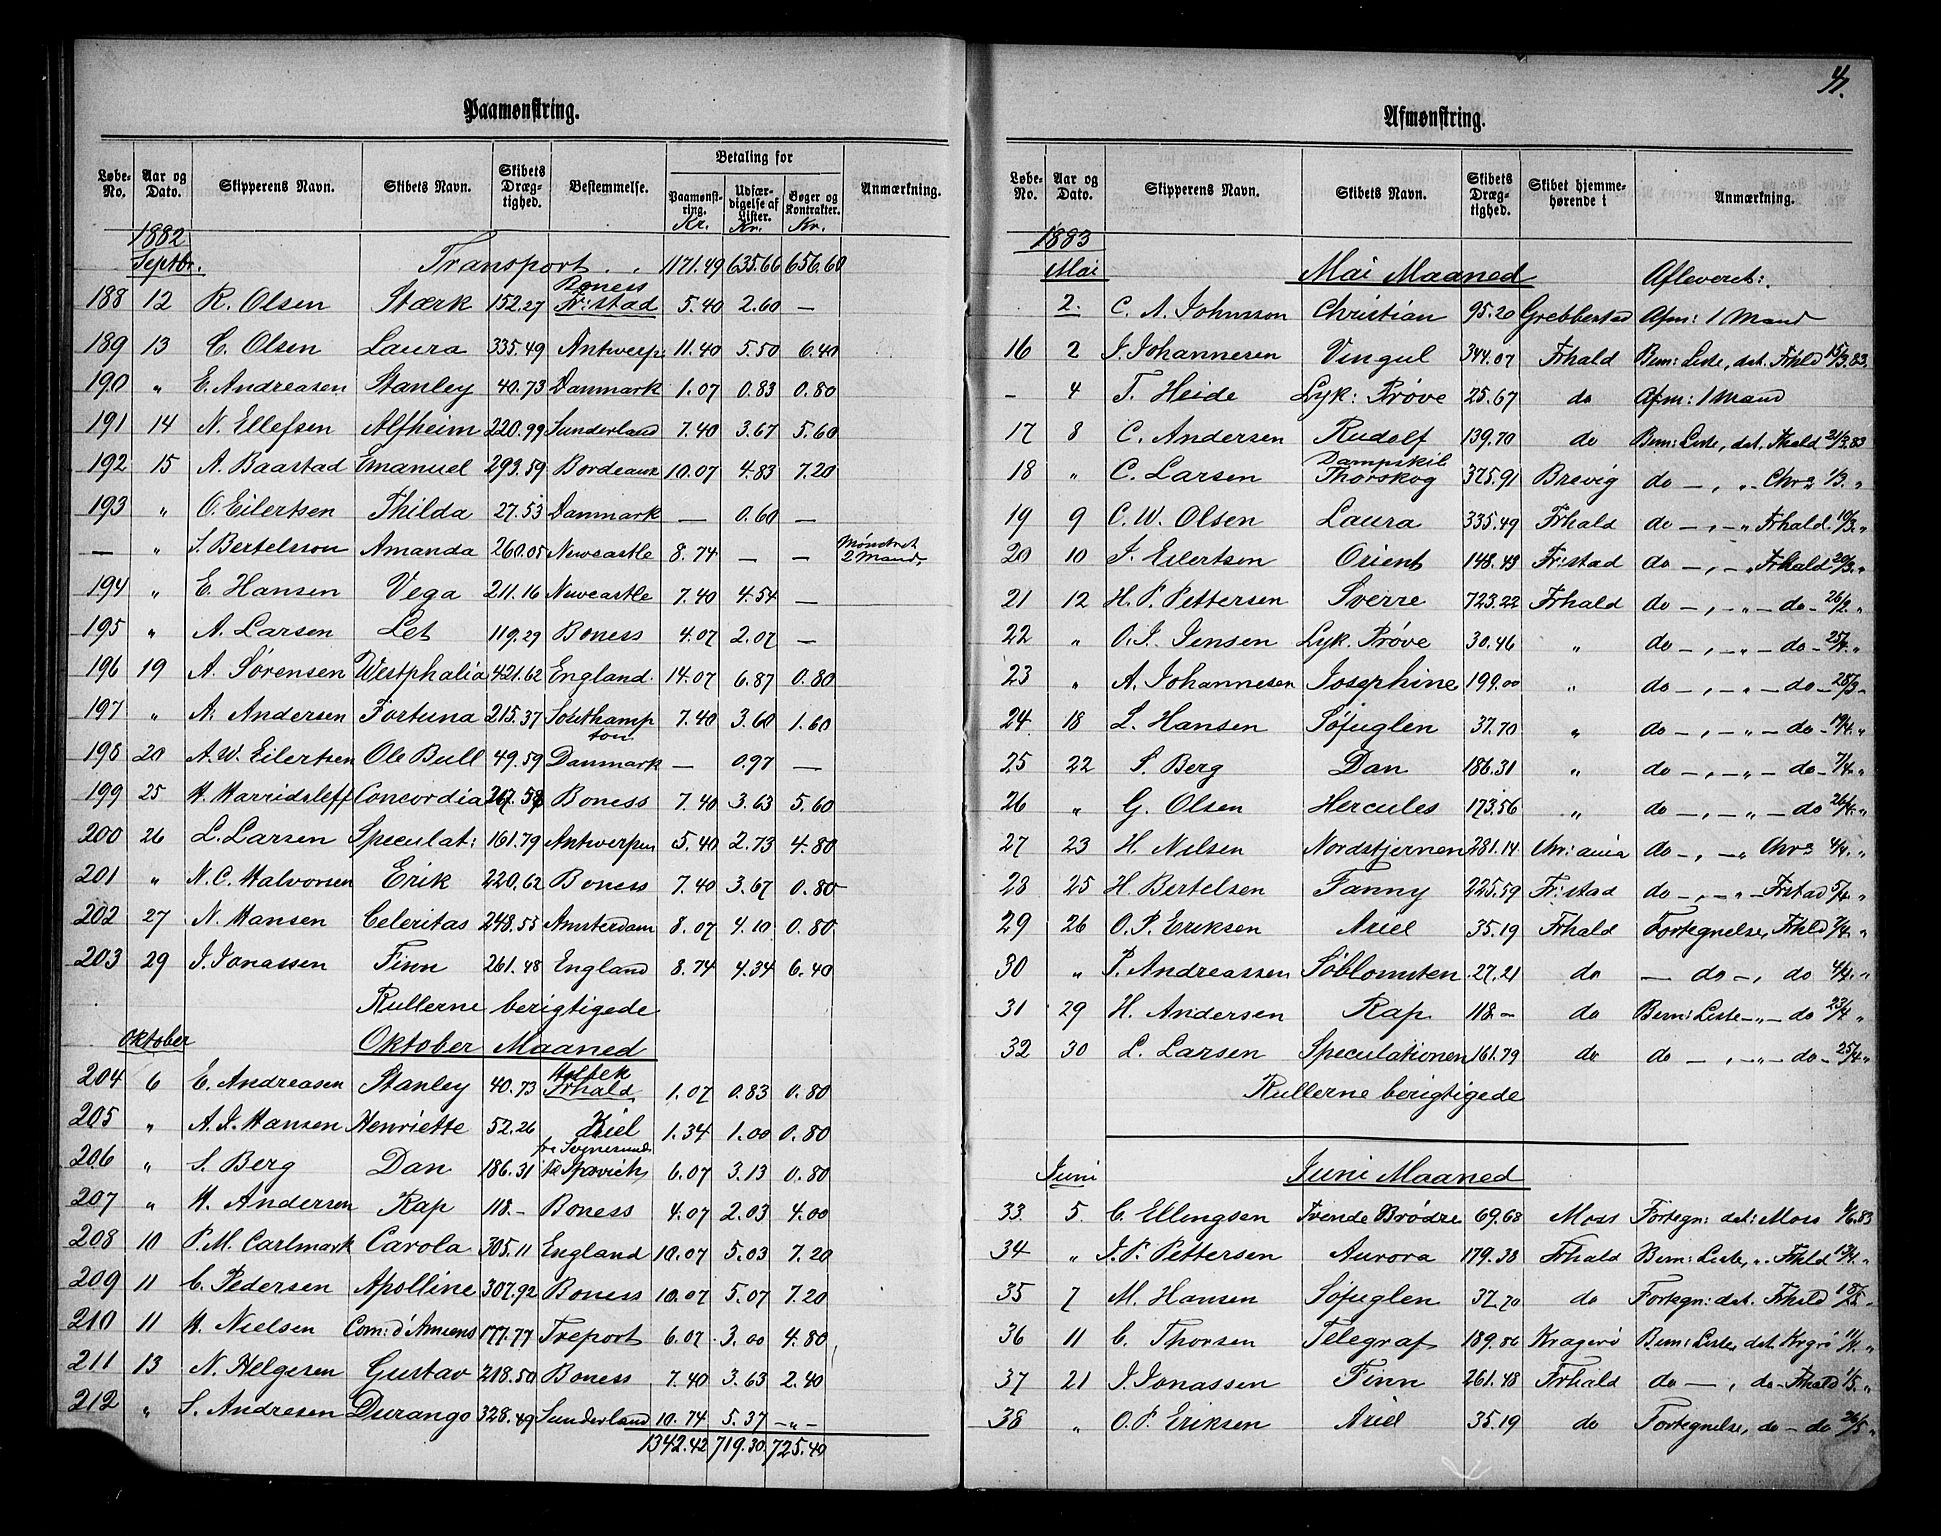 Paamønstring.
Løbe-No. Aar og Dato. Skipperens Navn. Skibets Navn. Skibets Dræg-tighed. Bestemmelse. Betaling for Anmærkning.
Paamønst-ring. Udfær-digelse af Lister. Bøger og Kontrakter.
Kr. Kr. Kr.
1882
Septbr. Transport . . 1171.49 635.66 656.60
188 12 R. Olsen Stærk 152.27 Boness Fr:stad 5.40 2.60 —
189 13 C. Olsen Laura 335.49 Antwerp. 11.40 5.50 6.40
190 " E. Andreasen Stanley 40.73 Danmark 1.07 0.83 0.80
191 14 N. Ellefsen Alfheim 220.99 Sunderland 7.40 3.67 5.60
192 15 A. Baastad Emanuel 293.59 Bordeaux 10.07 4.83 7.20
193 " O. Eilertsen Thilda 27.53 Danmark — 0.60 —
— " S. Bertelsson Amanda 260.05 Newcastle 8.74 — — Mønstret 2 Mand,
194 " E. Hansen Vega 211.16 Newcastle 7.40 4.54 —
195 " A. Larsen Let 119.29 Boness 4.07 2.07 —
196 19 A. Sørensen Westphalia 421.62 England. 14.07 6.87 0.80
197 " A. Andersen Fortuna 215.37 Southamp ton 7.40 3.60 1.60
198 20 A. W. Eilertsen Ole Bull 49.59 Danmark — 0.97 —
199 25 H. Harridsleff Concordia Boness 7.40 3.63 5.60
200 26 L. Larsen Speculat: 161.79 Antwerpen 5.40 2.73 4.80
201 " N. C. Halvorsen Erik 220.62 Boness 7.40 3.67 0.80
202 27 N. Hansen Celeritas 248.55 Amsterdam 8.07 4.10 0.80
203 29 J. Jonassen Finn 261.48 England 8.74 4.34 6.40
Rullerne berigtigede
Oktober Oktober Maaned
204 6 E. Andreasen Stanley 40.73 Holbek Frhald 1.07 0.83 0.80
205 " A. J. Hansen Henriette 52.26 Kiel 1.34 1.00 0.80
206 " S. Berg Dan 186.31 6.07 3.13 0.80
207 " H. Andersen Rap 118.- Boness 4.07 2.03 4.00
208 10 P. M. Carlmark Carola 305.11 England 10.07 5.03 7.20
209 11 C. Pedersen Apolline 307.92 Boness 10.07 5.07 7.20
210 11 H. Nielsen Com: d'Amiens 177.77 Treport 6.07 3.00 4.80
211 13 N. Helgesen Gustav 218.50 Boness 7.40 3.63 2.40
212 " S. Andresen Durango 328.49 Sunderland 10.74 5.37 —"—
1342.42 719.30 725.40
41.
Afmønstring.
Løbe-No. Aar og Dato. Skipperens Navn. Skibets Navn. Skibets Dræg-tighed. Skibet hjemme-hørende i Anmærkning.
1883
Mai Mai Maaned Afleveret:
2. C. A. Johnsson Christian 95.20 Grebbestad Afm: 1 Mand
16 2 J. Johannesen Vingul 344.07 Frhald Bem: Liste, dat. Frhld 15/3.83.
- 4 T. Heide Lyk: Prøve 25.67 do Afm: 1 Mand
17 8 C. Andersen Rudolf 139.70 do Bem: Liste, dat. Frhald 21/3.83
18 " C. Larsen Dampskib Thorskog 375.91 Brevig do —, " Chra 1/3. "
19 9 C. W. Olsen Laura 335.49 Frhald do —, —" Frhald 10/3. "
20 10 J. Eilertsen Orient 148.43 Fr:stad do —, —" Frhald 20/3. "
21 12 H. P. Pettersen Sverre 723.22 Frhald do —, —"— do — 26/2. "
22 " O. J. Jensen Lyk. Prøve 30.46 " do —, —"— do — 25/4. "
23 " A. Johannesen Josephine 199.00 " do —, —"— do — 28/3. "
24 18 L. Hansen Søfuglen 37.70 " do —, —"— do — 19/4. "
25 22 S. Berg Dan 186.31 " do —, —"— do — 7/4. "
26 " G. Olsen Hercules 173.56 " do —, —"— do 26/4. "
27 23 H. Nilsen Nordstjernen 281.14 Chr:ania do —, —" Chra 4/4. "
28 25 H. Bertelsen Fanny 225.59 Fr:stad do —, —" Frstad 5/4 "
29 26 O. P. Eriksen Ariel 35.19 Frhald Fortegnelse, Frhld 7/4. "
30 " P. Andreassen Søblomsten 27.21 do — do —, do 4/4. "
31 29 H. Andersen Rap 118.— do Bem: Liste —"— do 23/4 "
32 30 L. Larsen Speculationen 161.79 do do —, —"— do — 25/4 "
Rullerne berigtigede
Juni Juni Maaned
33 5. C. Ellingsen Tvende Brødre 69.68 Moss Fortegn: dat: Moss
34 " J. P. Pettersen Aurora 179.38 Frhald Bem: Liste, ". Frhld 13/4. "
35 7 M. Hansen Søfuglen 37.70 do Fortegn: dat. Frhald
36 11 C. Thorsen Telegraf 189.86 Kragerø Bem: Liste, dat. Krgrø 11/4. "
37 21 J. Jonassen Finn 261.48 Frhald do —, do — Frhald 1/5. "
38 " O. P. Eriksen Ariel 35.19 do Fortegnelse, do — do 26/5 "